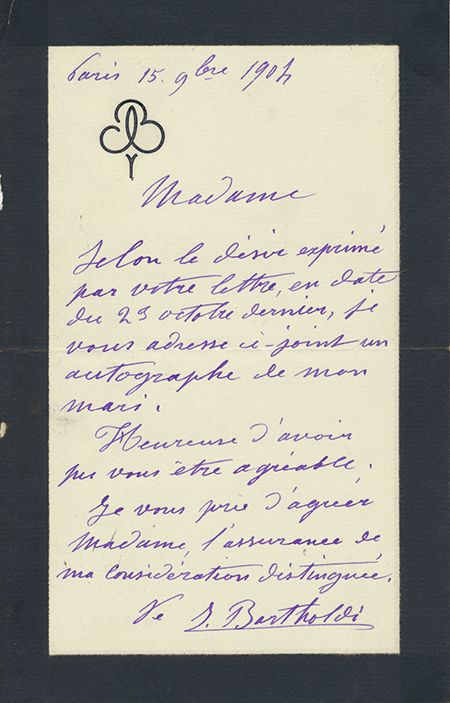 Paris 15. 9bre 1904
Madame
Selon le désir exprimé
par votre lettre, en date
du 23 octobre dernier, je
vous adresse ci-joint un
autographe de mon
mari.
Heureuse d'avoir
pu vous être agréable.
Je vous prie d'agréer
Madame, l'assurance de
ma considération distinguée.
Ve J. Bartholdi